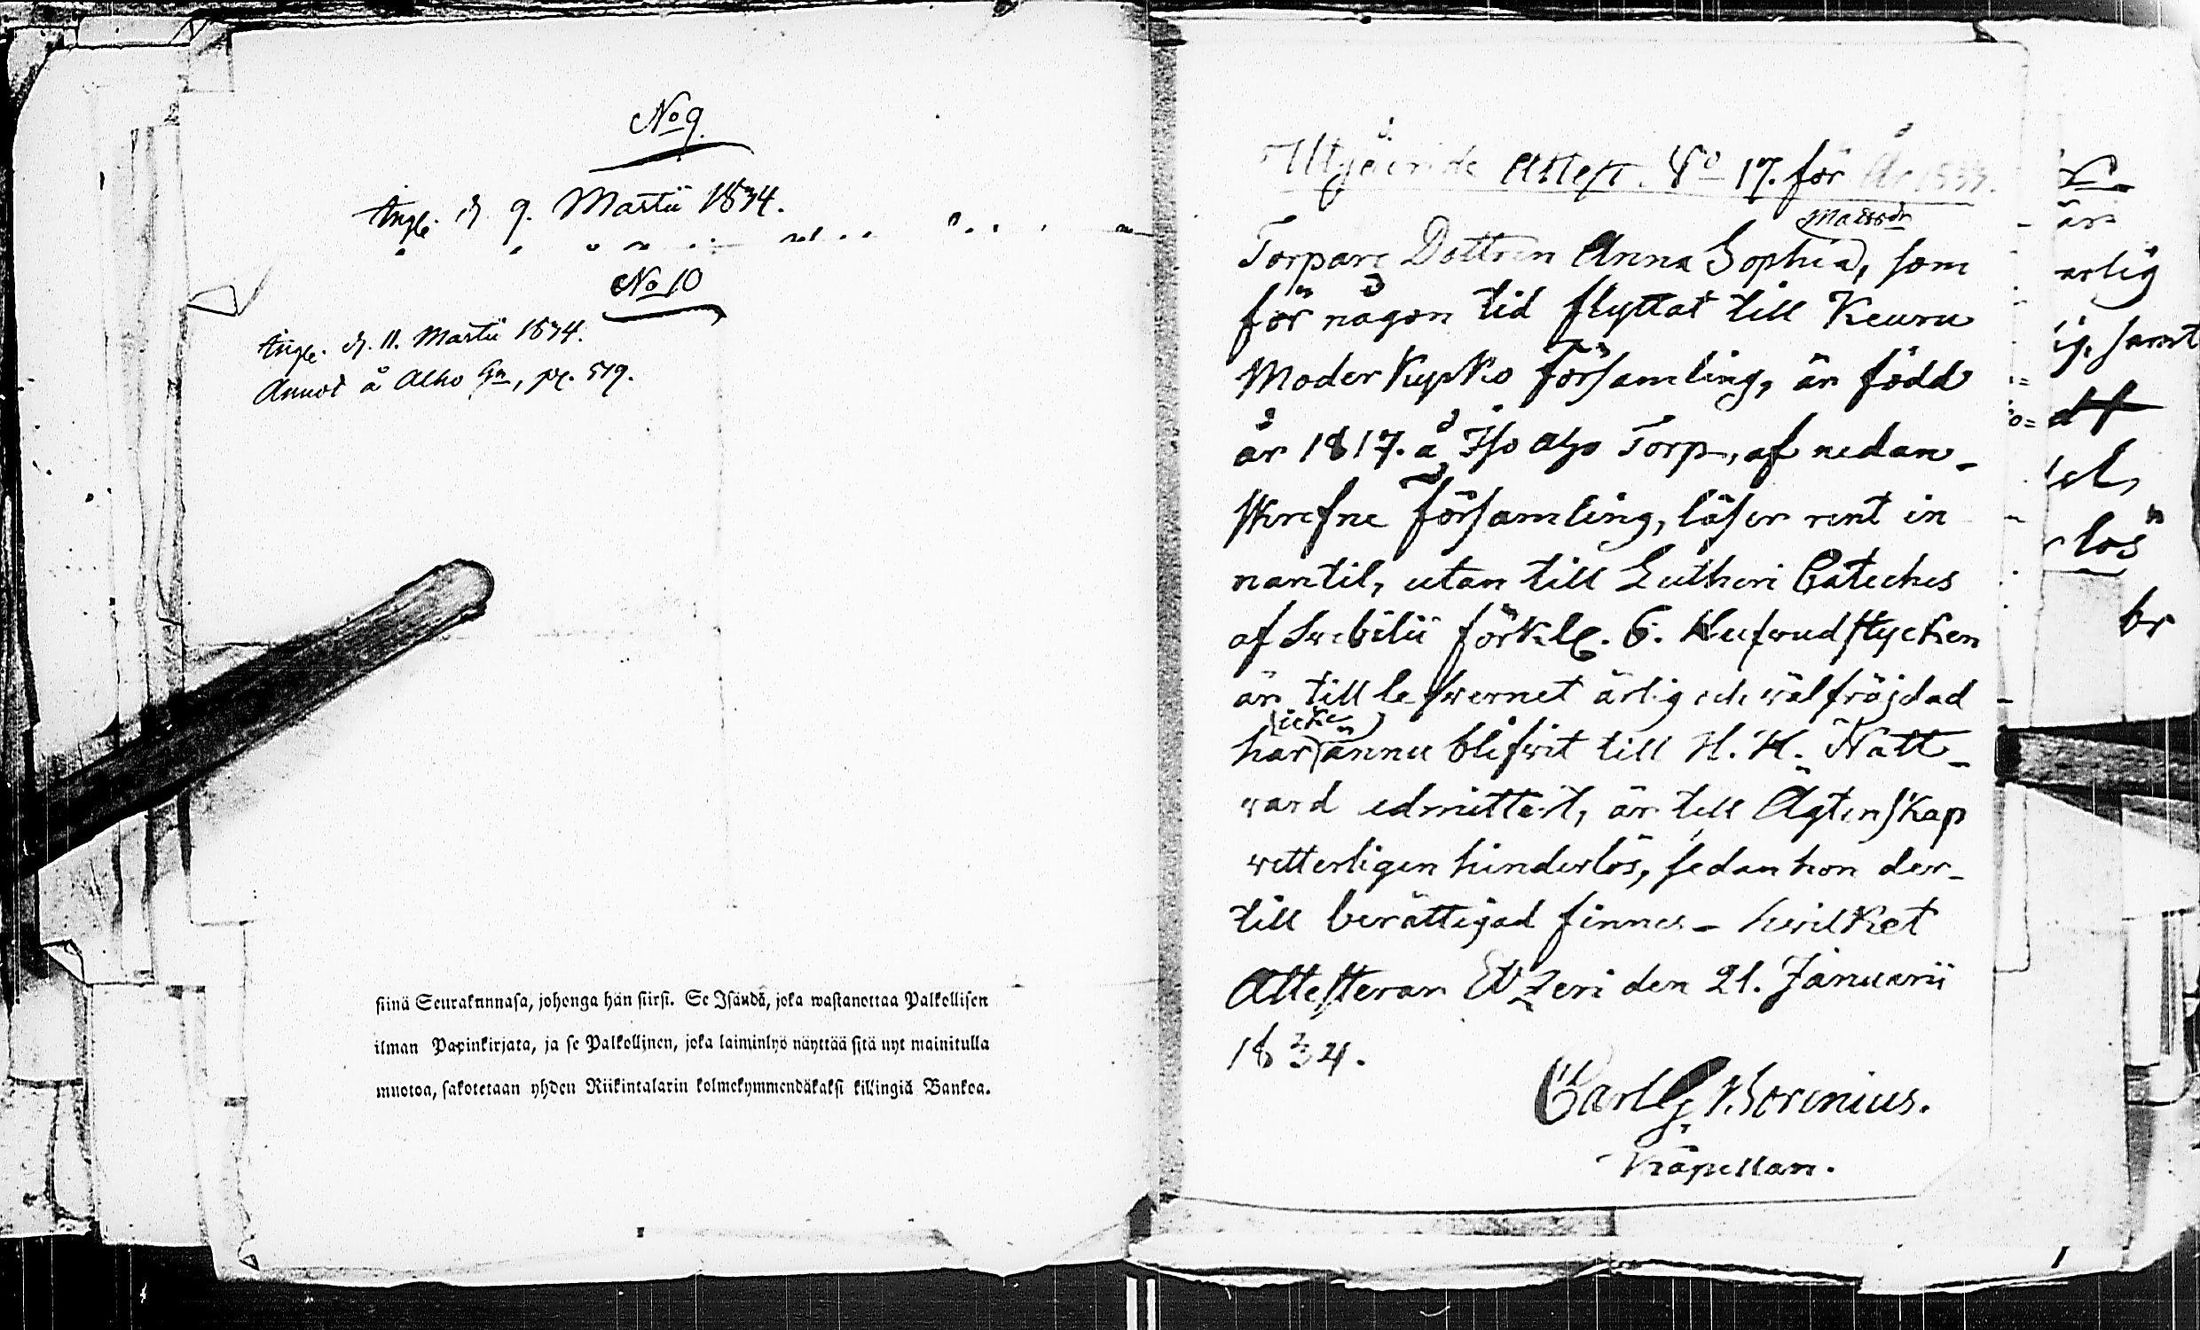 No 9
Angl. d. 9. Martii 1834.
No 10
Angl. d. 11. Martii 1834.
Annot å Alho Gn, pg. 519.
siinä Seurakunnasa, johonga hän siirsi. Se Isändä, joka wastanottaa Palkollisen
ilman Papinkirjata, ja se Palkollinen, joka laiminlyö näyttää sitä nyt mainitulla
muotoa, sakotetaan yhden Riikintalarin kolmekymmendäkaksi killingiä Bankoa.
Utgående Attest No 17. för År 1834.
Torpare Dottren Anna Sophia Matsdr, som
för någon tid flyttat till Keuru
Moderkyrko Församling, är född
år 1817. å Iso Aho Torp, af nedan-
skrefne Församling, läser rent in
nantil, utan till Lutheri Cateches
af Swebilii förkl. 6. Hufwudstycken
är till lefwernet ärlig och wälfräjdad
har icke ännu blifwit till H. H. Natt-
ward admitterit, är till Ägtenskap
wetterligen hinderlös, sedan hon der-
till berättigad finnes - hwilket
Attesterar Etzeri den 21. Januarii
1834.
Carl G. Borenius.
Kapellan.
är
arlig
ig, samt
los
br